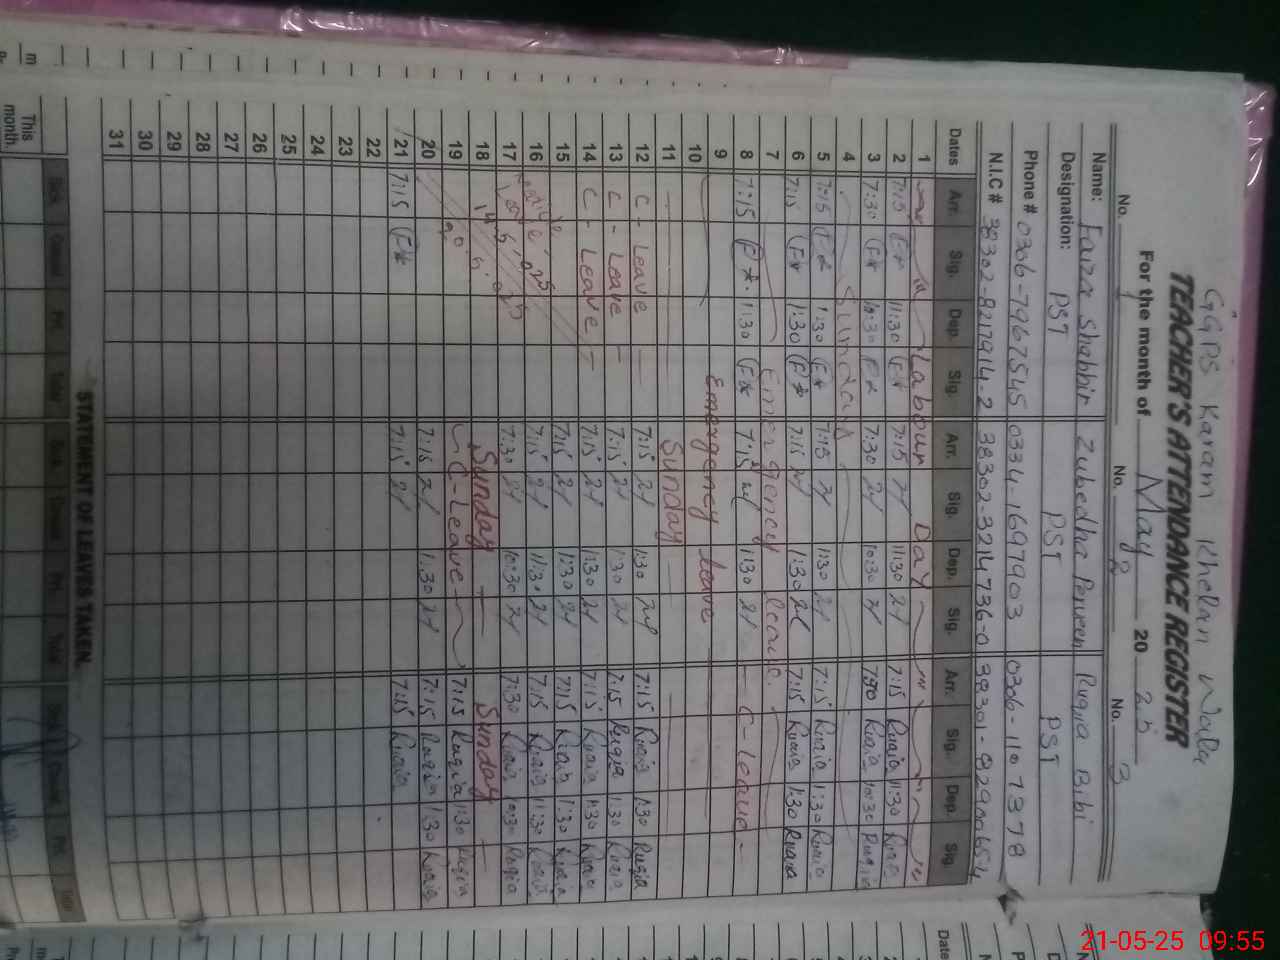 GGPS Karam Khelan Wala
TEACHER'S ATTENDANCE REGISTER
For the month of May 2025
No. 1 No. 2 No. 3
Name: Faiza Shabbir Zubedha Perveen Ruqia Bibi
Designation: PST PST PST
Phone # 0306-7967545 0334-1697903 0306-1107378
N.I.C # 38302-8217914-2 38302-3214736-0
Dates Arr. Sig. Dep. Sig. Arr. Sig. Dep. Sig. Arr. Sig. Dep. Sig.
1 Labour Day
2 7:15 11:30 7:15 11:30 7:15 Ruqia 11:30 Ruqia
3 7:30 10:30 7:30 10:30 7:30 Ruqia 10:30 Ruqia
4 Sunday
5 7:15 1:30 7:15 1:30 7:15 Ruqia 1:30 Ruqia
6 7:15 1:30 7:15 1:30 7:15 Ruqia 1:30 Ruqia
7 Emergency leave
8 7:15 1:30 7:15 1:30 C-Leave
9 Emergency leave
10
11 Sunday
12 C-Leave 7:15 1:30 7:15 Ruqia 1:30 Ruqia
13 C-Leave 7:15 1:30 7:15 Ruqia 1:30 Ruqia
14 C-Leave 7:15 1:30 7:15 Ruqia 1:30 Ruqia
15 7:15 1:30 7:15 Ruqia 1:30 Ruqia
16 7:15 11:30 7:15 Ruqia 11:30 Ruqia
17 7:30 10:30 7:30 Ruqia 10:30 Ruqia
18 Sunday Sunday
19 C-Leave 7:15 Ruqia 1:30 Ruqia
20 7:15 11:30 7:15 Ruqia 1:30 Ruqia
21 7:15 7:15 7:15 Ruqia
22
23
24
25
26
27
28
29
30
31
STATEMENT OF LEAVES TAKEN.
This month.
21-05-25 09:55